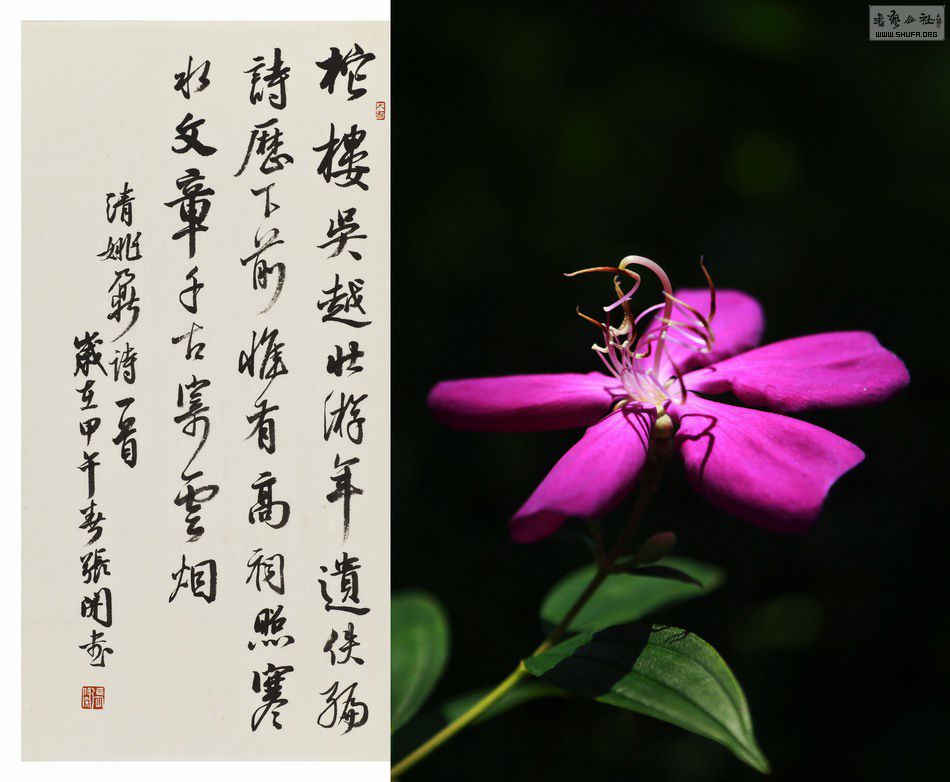 柁樓吳越壯游年遺佚編
詩歷下前惟有高祠照寒
水文章千古寄雲烟
清姚鼐詩一首
歲在甲午春張书
書藝公社
WWW.SHUFA.ORG